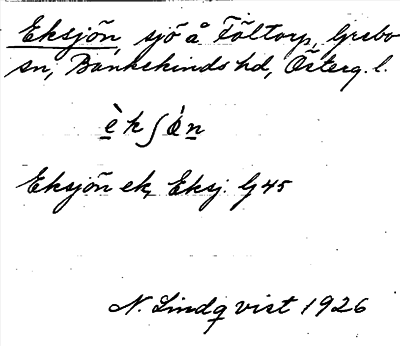 Eksjön, sjö åFöltorp, Grebo
sn, Bankekinds hd, Österg. l.
è k ʃ ȯ́ n
Eksjön ek, Eksj. G 45
N. Lindqvist 1926